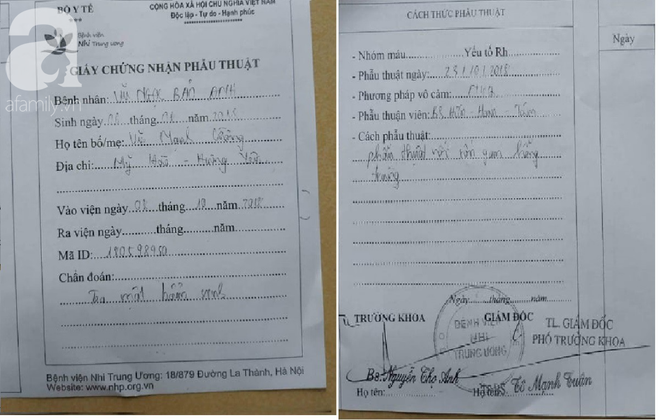 BỘ Y TẾ
***
CỘNG HÒA XÃ HỘI CHỦ NGHĨA VIỆT NAM
Độc lập - Tự do - Hạnh phúc
Bệnh viện
Nhi Trung ương
a
afamily.vn
GIẤY CHỨNG NHẬN PHẪU THUẬT
Bệnh nhân: VŨ NGỌC BẢO ANH
Sinh ngày tháng năm 2018
Họ tên bố/mẹ: Vũ Mạnh
Địa chỉ: Mỹ Hào - Hưng Yên
Vào viện ngày 02 tháng 10 năm 2018
Ra viện ngày tháng năm
Mã ID:
Chẩn đoán:
Teo mật bẩm sinh
Bệnh viện Nhi Trung Ương: 18/879 Đường La Thành, Hà Nội
Website: www.nhp.org.vn
CÁCH THỨC PHẪU THUẬT
- Nhóm máu Yếu tố Rh
- Phẫu thuật ngày: 25/10/2018
- Phương pháp vô cảm:
- Phẫu thuật viên: BS
- Cách phẫu thuật:
phẫu thuật nối rốn gan hỗng
tràng
Ngày tháng năm
TRƯỞNG KHOA
GIÁM ĐỐC
TL. GIÁM ĐỐC
PHÓ TRƯỞNG KHOA
BỆNH VIỆN
NHI
TRUNG ƯƠNG
Bs. Nguyễn Thọ Anh
Tô Mạnh Tuân
Họ tên:
Họ tên:
Ngày